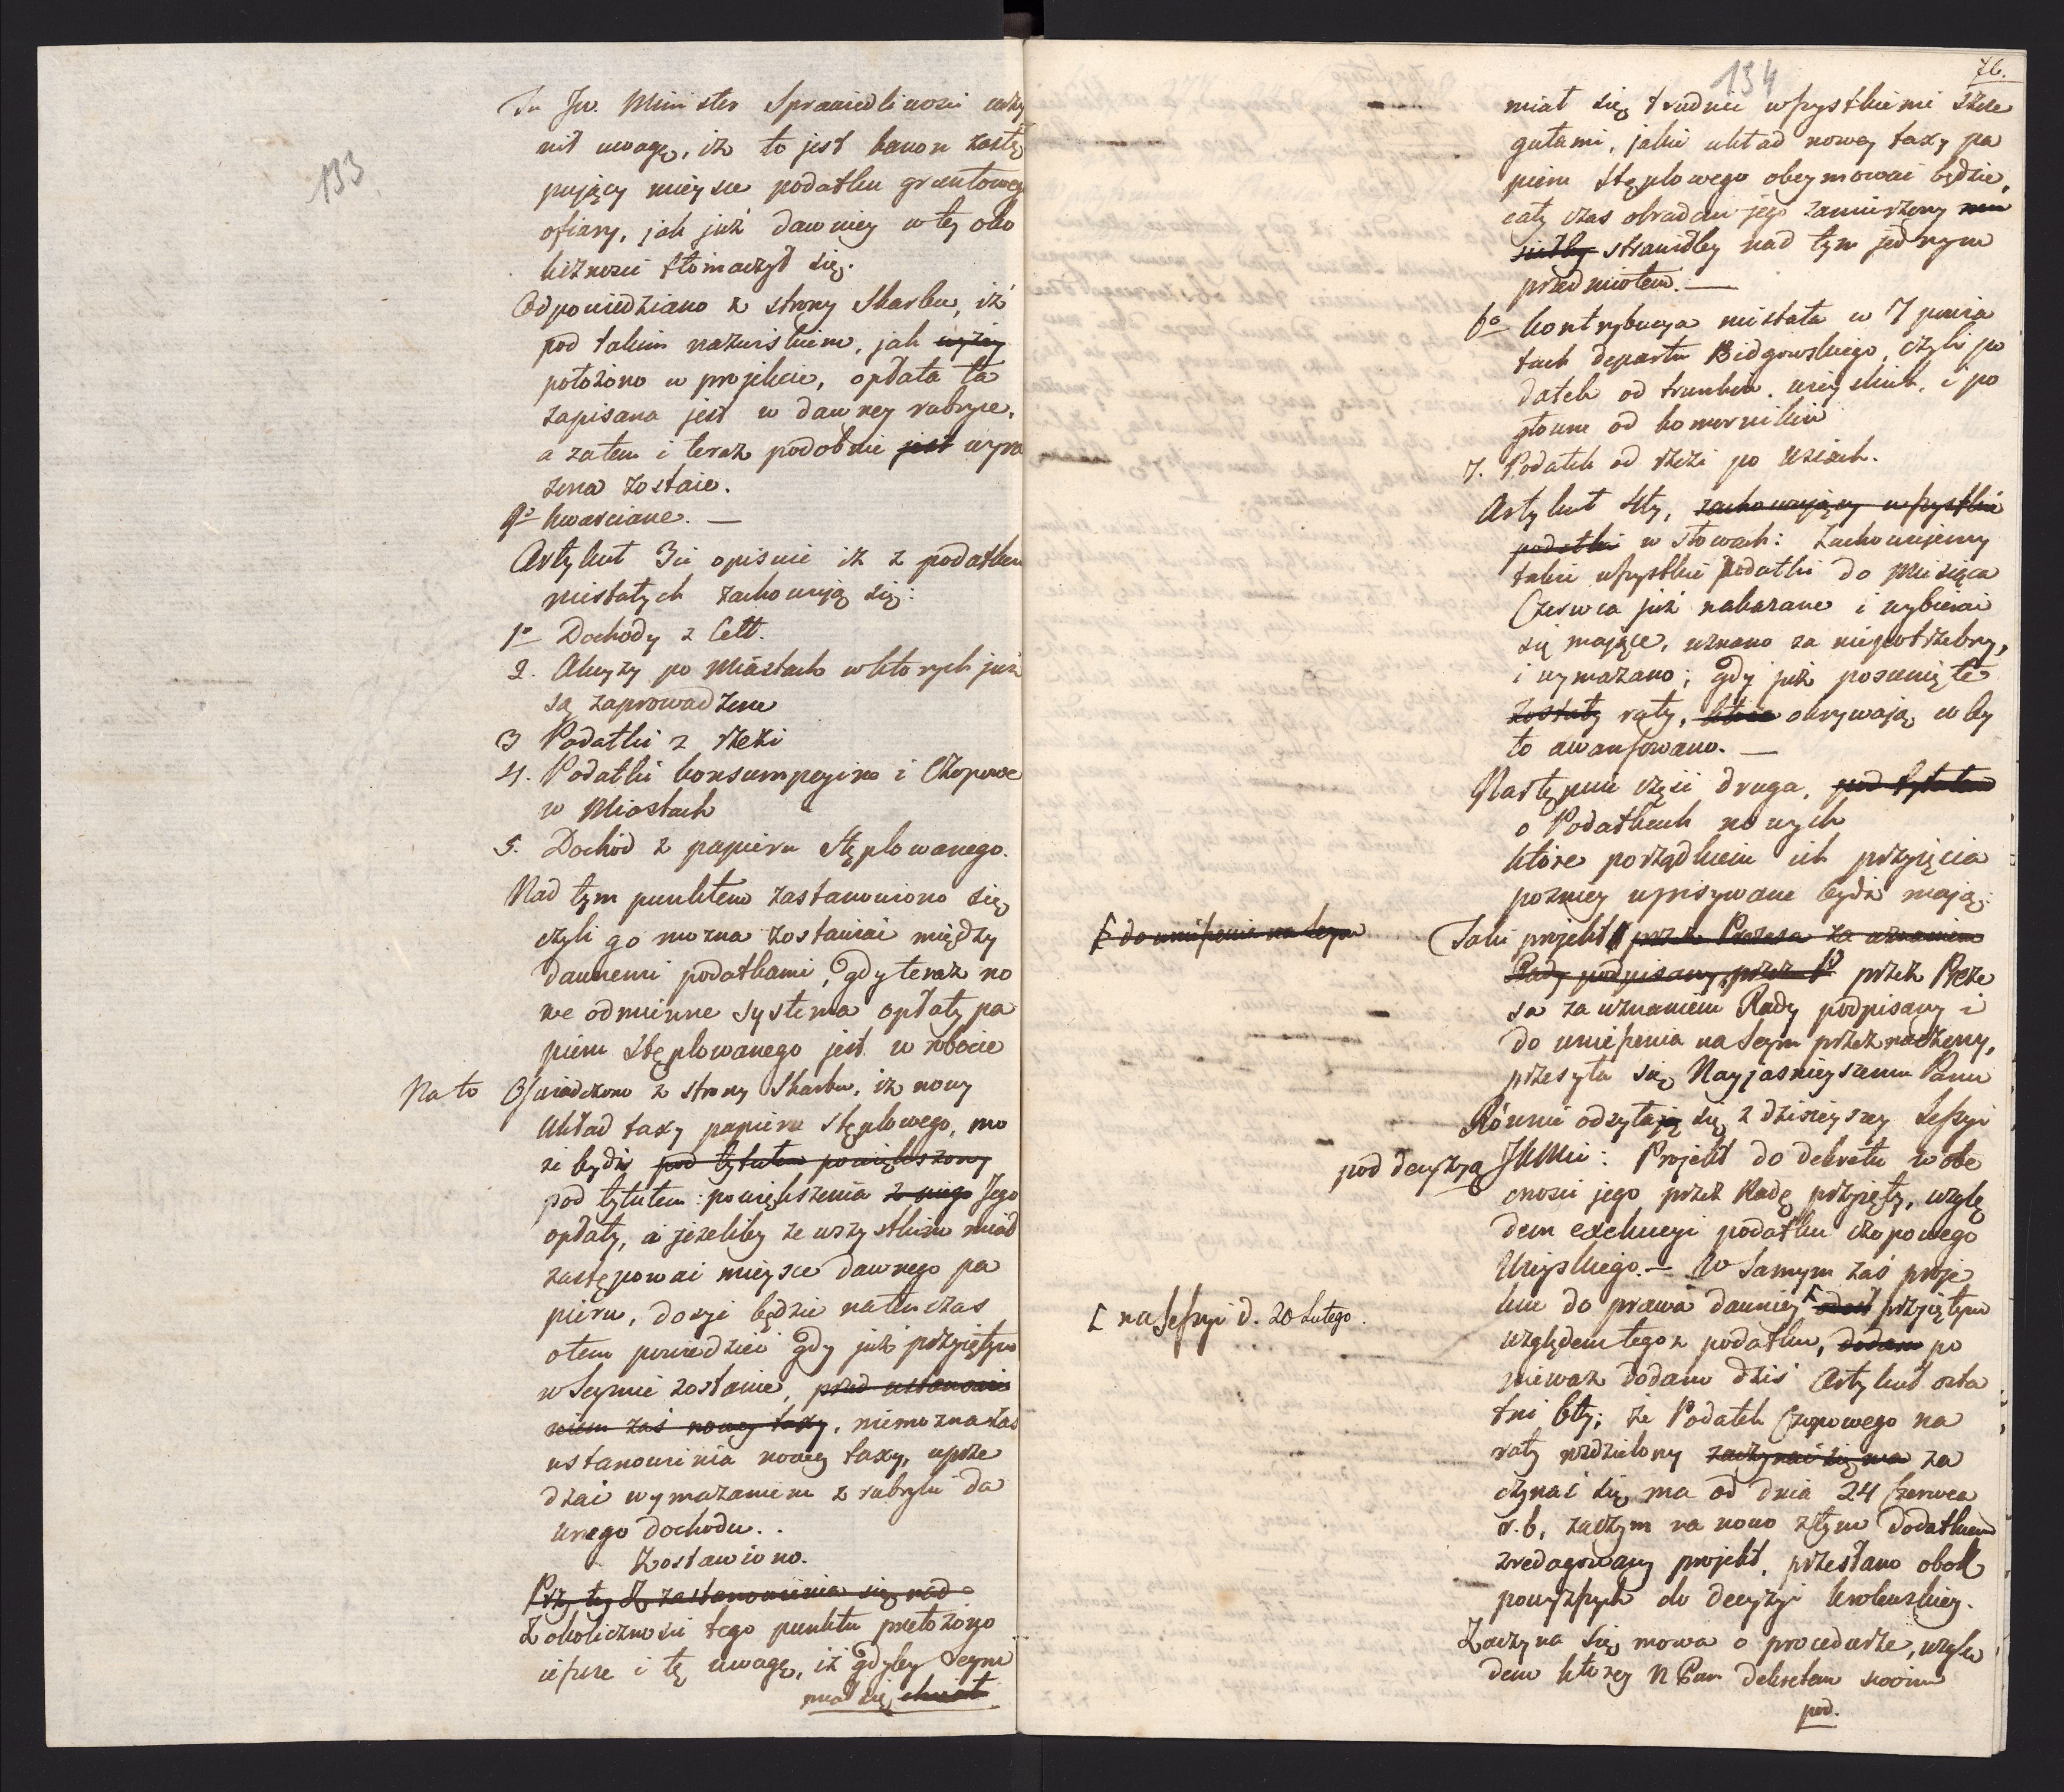 133
Tu Jw. Minister Sprawiedliwosci uczy
nił uwagę, iż to jest kanon zastę
pujący mieysce podatku gruntowego
ofiary, jak już dawniey w tey oko
liczności tłomaczył się.
Odpowiedziano z strony Skarbu, iż
pod takim nazwiskiem, jak wyżey
położono w projekcie, opłata ta
zapisana jest w dawney rubryce,
a zatem i teraz podobnie jest wyra
żona zostaie.
9o kwarciane. —
Artykuł 3ci opisuie iż z podatkow
niestałych zachowują się:
1o Dochody z Cełł.
2. Akcyzy po Miastach w których już
są zaprowadzone
3 Podatki z rzezi
4. Podatki konsumpcyine i Czopowe
w Miastach
5. Dochód z papieru stęplowanego.
Nad tym punktem zastanowiono się
czyli go można zostawiać między
dawnemi podatkami, gdy teraz no
we odmienne systema opłaty pa
pieru stęplowanego jest w robocie
Na to Oswiadczono z strony Skarbu, iż nowy
Układ taxy papieru stęplowego, mo
że bydź pod tytułem powiększony
pod tytułem: powiększenia z niego Jego
opłaty, a jeżeliby ze wszystkim miał
zastępować mieysce dawnego pa
pieru, dosyć będzie natenczas
o tem powiedzieć gdy już przyiętym
w Seymie zostanie, przed ustanowie
niem zaś nowey taxy, niemożna zaś
ustanowienia nowey taxy, uprze
dzać wymazaniem z rubryki da
wnego dochodu..
Zostawiono.
Przy tey zastanowienia się nad
Z okoliczności tego punktu przełożono
ieszcze i tę uwagę, iż gdyby Seym
miał się chciał
134
76.
miał się trudnić wszystkiemi szcze
gułami, jakie układ nowey taxy pa
pieru stęplowego obeymować będzie,
cały czas obradom jego zamierzony mu
siałby strawiłby nad tym jednym
przedmiotem. —
6o kontrybucya niestała w 7 powia
tach departu Bidgowskiego, czyli po
datek od trunków wieyskich, i po
główne od komorników
7. Podatek od rzezi po Wsiach.
Artykuł 4ty, zachowujący wszystkie
podatki w słowach: zachowujemy
takie wszystkie podatki do Miesiąca
Czerwca już nakazane i wybierać
się mające, uznano za niepotrzebny,
i wymazano; gdy już posunięte
zostały raty, które okrywają, coby
to awansowano. —
Następuie część druga, pod tytułem
o Podatkach nowych
które porządkiem ich przyięcia
pozniey wpisywane bydź mają:
[ do wniesienia na Seym
Taki projekt przez Prezesa za uznaniem
Rady podpisany, przez przez Preze
sa za uznaniem Rady podpisany i
do wniesienia na Seym przeznaczony,
przesyła się Nayjasnieyszemu Panu
Równie odsyłają się z dzisieyszey Sessyi
pod decyzyą JKMci: Projekt do dekretu w obe
cności jego przez Radę przyięty, wzglę
dem exekucyi podatku czopowego
Wieyskiego. — W samym zaś proje
kcie do prawa dawniey przyiętym
[ na Sessyi d. 20 Lutego.
względem tegoż podatku, dodano po
nieważ dodano dziś Artykuł osta
tni 6ty; że Podatek Czopowego na
raty rozdzielony zaczynać się ma za
czynać się ma od dnia 24 Czerwca
r. b, zaczym na nowo z tym dodatkiem
zredagowany projekt, przesłano obok
powyższych do decyzyi krolewskiey.
Zaczyna się mowa o procedurze, wzglę
dem którey N Pan dekretem swoim
pod.